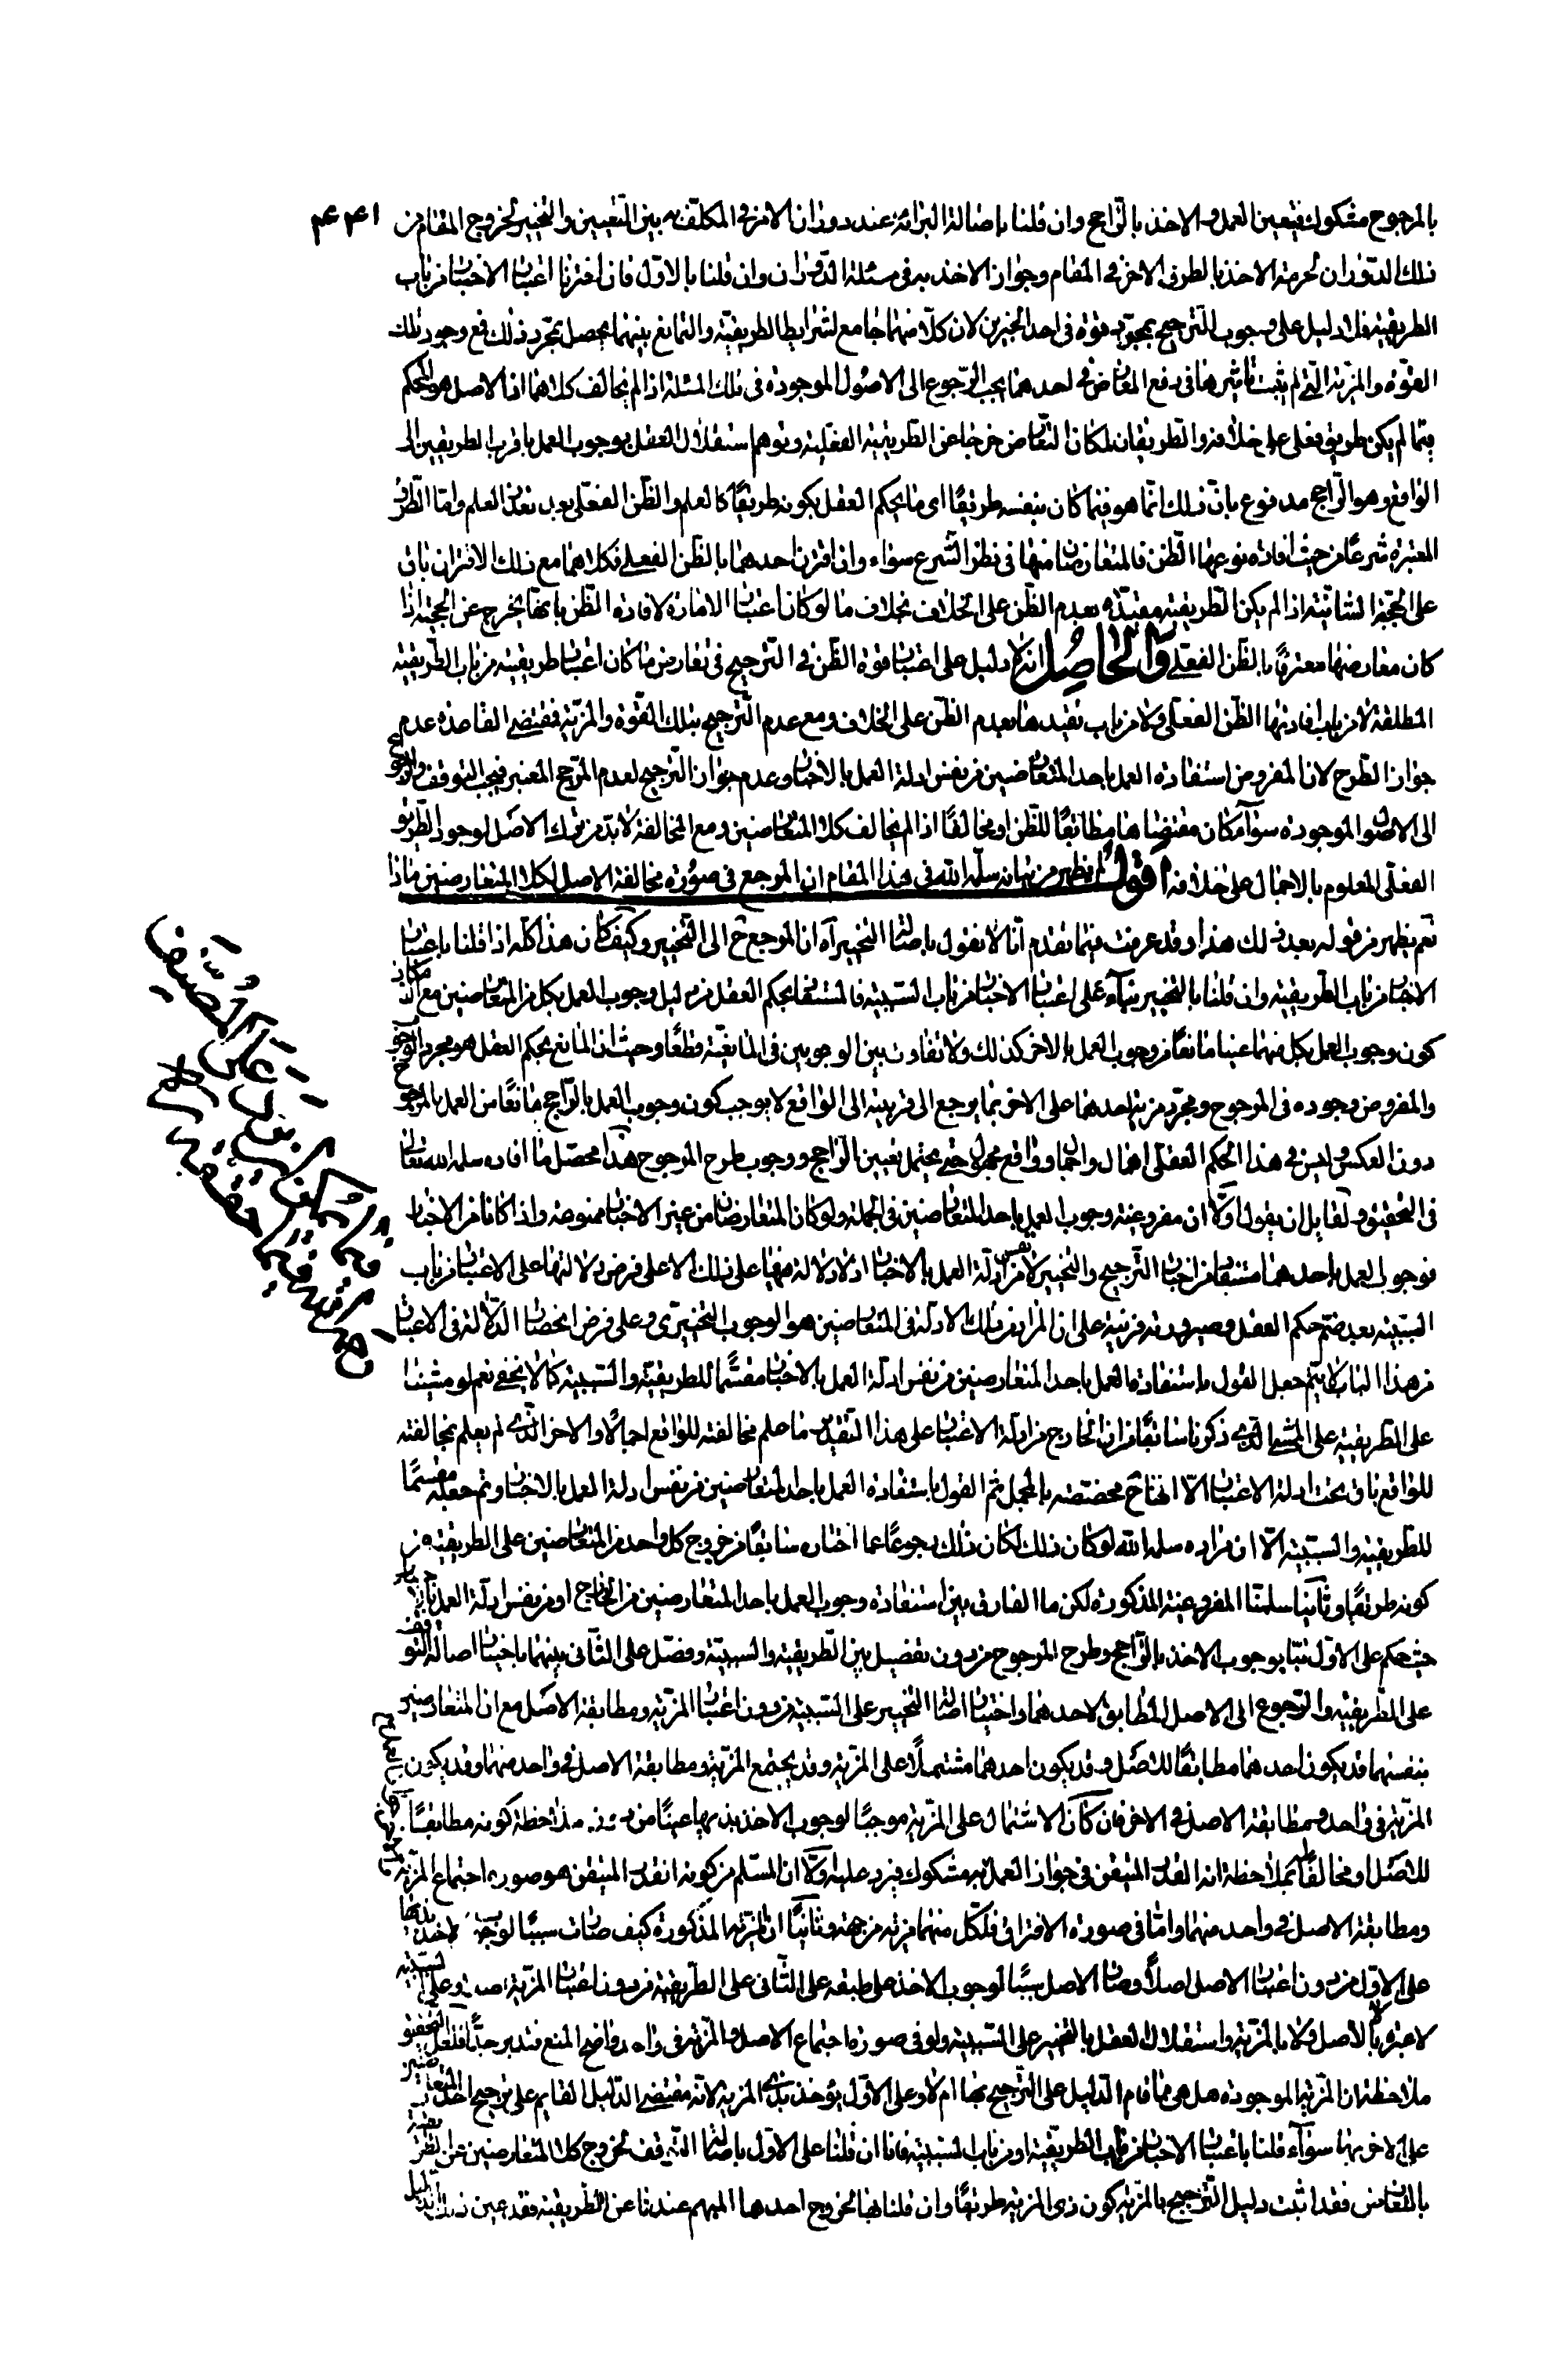 بالمرجوح مشكوك فيتعين العمل والاخذ بالراجح وان قلنا باصالة البرائة عند دوران الامر في المكلف به بين التعيين والتخيير لخروج المقام من ۴۴۱
ذلك الدوران لحرمة الاخذ بالطرف الاخر في المقام وجواز الاخذ به في مسئلة الدوران وان قلنا بالاول فان اعتبرنا اعتبار الاخبار من باب
الطريقية فلا دليل على وجوب الترجيح بمجرد قوة في احد الخبرين لان كلا منهما جامع لشرايط الطريقية والتمانع بينهما يحصل بمجرد ذلك فمع وجود تلك
القوة والمزية التي لم يثبت تأثيرها في دفع المعارض في احدهما يجب الرجوع الى الاصول الموجودة في تلك المسئلة اذا لم يخالف كلاهما اذ الاصل هو المحكم
فيما لم يكن طريق فعلي على خلافه والطريقان لمكان التعارض خرجا عن الطريقية الفعلية وتوهم استقلال العقل بوجوب العمل باقرب الطريقين الى
الواقع وهو الراجح مدفوع بان ذلك انما هو فيما كان بنفسه طريقا اى ما يحكم العقل بكونه طريقا كالعلم والظن الفعلي بعد تعذر العلم واما الطرق
المعتبرة شرعا من حيث افادة نوعها الظن فالمتعارضان منها في نظر الشرع سواء وان اقترن احدهما بالظن الفعلي فكلاهما مع ذلك الاقتران باق
على الحجية الشانية اذا لم يكن الطريقية مقيدة بعدم الظن على الخلاف بخلاف ما لو كان اعتبار الامارة لافادة الظن بانها يخرج عن الحجية اذا
كان معارضها مقترنا بالظن الفعلي والحاصل انه لا دليل على اعتبار قوة الظن في الترجيح في تعارض ما كان اعتبار طريقيته من باب الطريقية
المطلقة لا من باب افادتها الظن الفعلي ولا من باب تقيدها بعدم الظن على الخلاف ومع عدم الترجيح بتلك القوة والمزية فمقتضى القاعدة عدم
جواز الطرح لان المفروض استفادة العمل باحد المتعارضين من نفس ادلة العمل بالاخبار وعدم جواز الترجيح لعدم المرجح المعتبر فيجب التوقف والرجوع
الى الاصول الموجودة سواء كان مقتضاها مطابقا للظن او مخالفا اذا لم يخالف كلا المتعارضين ومع المخالفة لا بد من ترك الاصل لوجود الطريق
العقلي المعلوم بالاجمال على خلافه اقول لم يظهر من بيانه سلمه الله في هذا المقام ان المرجع في صورة مخالفة الاصل لكلا المتعارضين ماذا
نعم يظهر من قوله بعد ذلك هذا وقد عرفت فيما تقدم انا لا نقول باصالة التخيير آه ان المرجع ح الى التخيير وكيف كان هذا كله اذا قلنا باعتبار
الاخبار من باب الطريقية وان قلنا بالتخيير بناء على اعتبار الاخبار من باب السببية فالمستفاد بحكم العقل من دليل وجوب العمل بكل من المتعارضين مع
كون وجوب العمل بكل منهما عينا مانعا من وجوب العمل بالاخر كذلك ولا تفاوت بين الوجوبين في المانعية قطعا وحيث ان المانع بحكم العقل هو مجرد الوجوب
والمفروض وجوده في المرجوح ومجرد مزية احدهما على الاخر بما يرجع الى قربيته الى الواقع لا يوجب كون وجوب العمل بالراجح مانعا من العمل بالمرجوح
دون العكس وليس في هذا الحكم العقلي اهمال واجمال وواقع مجهول حتى يحتمل تعيين الراجح ووجوب طرح المرجوح هذا محصل ما افاده سلمه الله تعالى
في التحقيق ولقايل ان يقول اولا ان مفروغية وجوب العمل باحد المتعارضين في الجملة ولو كان المتعارضان من غير الاخبار ممنوعة واذا كانا من الاخبار
فوجوب العمل باحدهما مستفاد من اخبار الترجيح والتخيير لا من نفس ادلة العمل بالاخبار اذ لا دلالة فيها على ذلك الا على فرض دلالتها على الاعتبار من باب
السببية بعد ضم حكم العقل وصيرورته قرينة على ان المراد من تلك الادلة في المتعارضين هو الوجوب التخييري وعلى فرض انحصار الدلالة في الاعتبار
من هذا الباب لا يتم جعل القول باستفادة العمل باحد المتعارضين من نفس ادلة العمل بالاخبار مقسما للطريقية والسببية كما لا يخفى نعم لو مشينا
على الطريقية على المشى الذي ذكرنا سابقا من ان الخارج من ادلة الاعتبار على هذا التقدير ما علم مخالفته للواقع اجمالا والاخر الذي لم يعلم مخالفته
للواقع باق تحت ادلة الاعتبار الا انها ح مخصصة بالمجمل يتم القول باستفادة العمل باحد المتعارضين من نفس ادلة العمل بالاخبار وتم جعله مقسما
للطريقية والسببية الا ان مراده سلمه الله لو كان ذلك لكان ذلك رجوعا عما اختاره سابقا من خروج كل واحد من المتعارضين على الطريقية من
كونه طريقا وثانيا سلمنا المفروغية المذكورة لكن ما الفارق بين استفادة وجوب العمل باحد المتعارضين من الخارج او من نفس ادلة العمل بالاخبار
حيث حكم على الاول بتا بوجوب الاخذ بالراجح وطرح المرجوح من دون تفصيل بين الطريقية والسببية وفصل على الثاني بينهما باختيار اصالة التوقف
على الطريقية والرجوع الى الاصل المطابق لاحدهما واختيار اصالة التخيير على السببية من دون اعتبار المزية ومطابقة الاصل مع ان المتعارضين
بنفسهما قد يكون احدهما مطابقا للاصل وقد يكون احدهما مشتملا على المزية وقد يجتمع المزية ومطابقة الاصل في واحد منهما وقد يكون
المزية في واحد ومطابقة الاصل في الاخر فان كان الاشتمال على المزية موجبا لوجوب الاخذ بذيها عينا من دون ملاحظة كونه مطابقا
للاصل او مخالفا بملاحظة انه القدر المتيقن في جواز العمل به مشكوك فيرد عليه اولا ان المسلم من كونه القدر المتيقن هو صورة اجتماع المزية
ومطابقة الاصل في واحد منهما واما في صورة الافتراق فلكل منهما مزية من جهة وثانيا ان المزية المذكورة كيف صارت سببا لوجوب الاخذ بذيها
على الاول من دون اعتبار الاصل اصلا وصار الاصل سببا لوجوب الاخذ على طبقه على الثاني على الطريقية من دون اعتبار المزية اصلا وعلى السببية
لا عبرة بالاصل ولا بالمزية واستقلال العقل بالتخيير على السببية ولو في صورة اجتماع الاصل والمزية في واحد واضح المنع فتدبر جدا فلعل التحقيق
ملاحظة ان المزية الموجودة هل هي مما قام الدليل على الترجيح بها ام لا وعلى الاول يؤخذ بذى المزية لانه مقتضى الدليل القايم على ترجيح احد المتعارضين
على الاخر بها سواء قلنا باعتبار الاخبار من باب الطريقية او من باب السببية فانا ان قلنا على الاول باصالة التوقف لخروج كلا المتعارضين عن الطريقية
بالتعارض فقد اثبت دليل الترجيح بالمزية كون ذى المزية طريقا وان قلنا بها لخروج احدهما المبهم عندنا عن الطريقية فقد عين ذلك الدليل